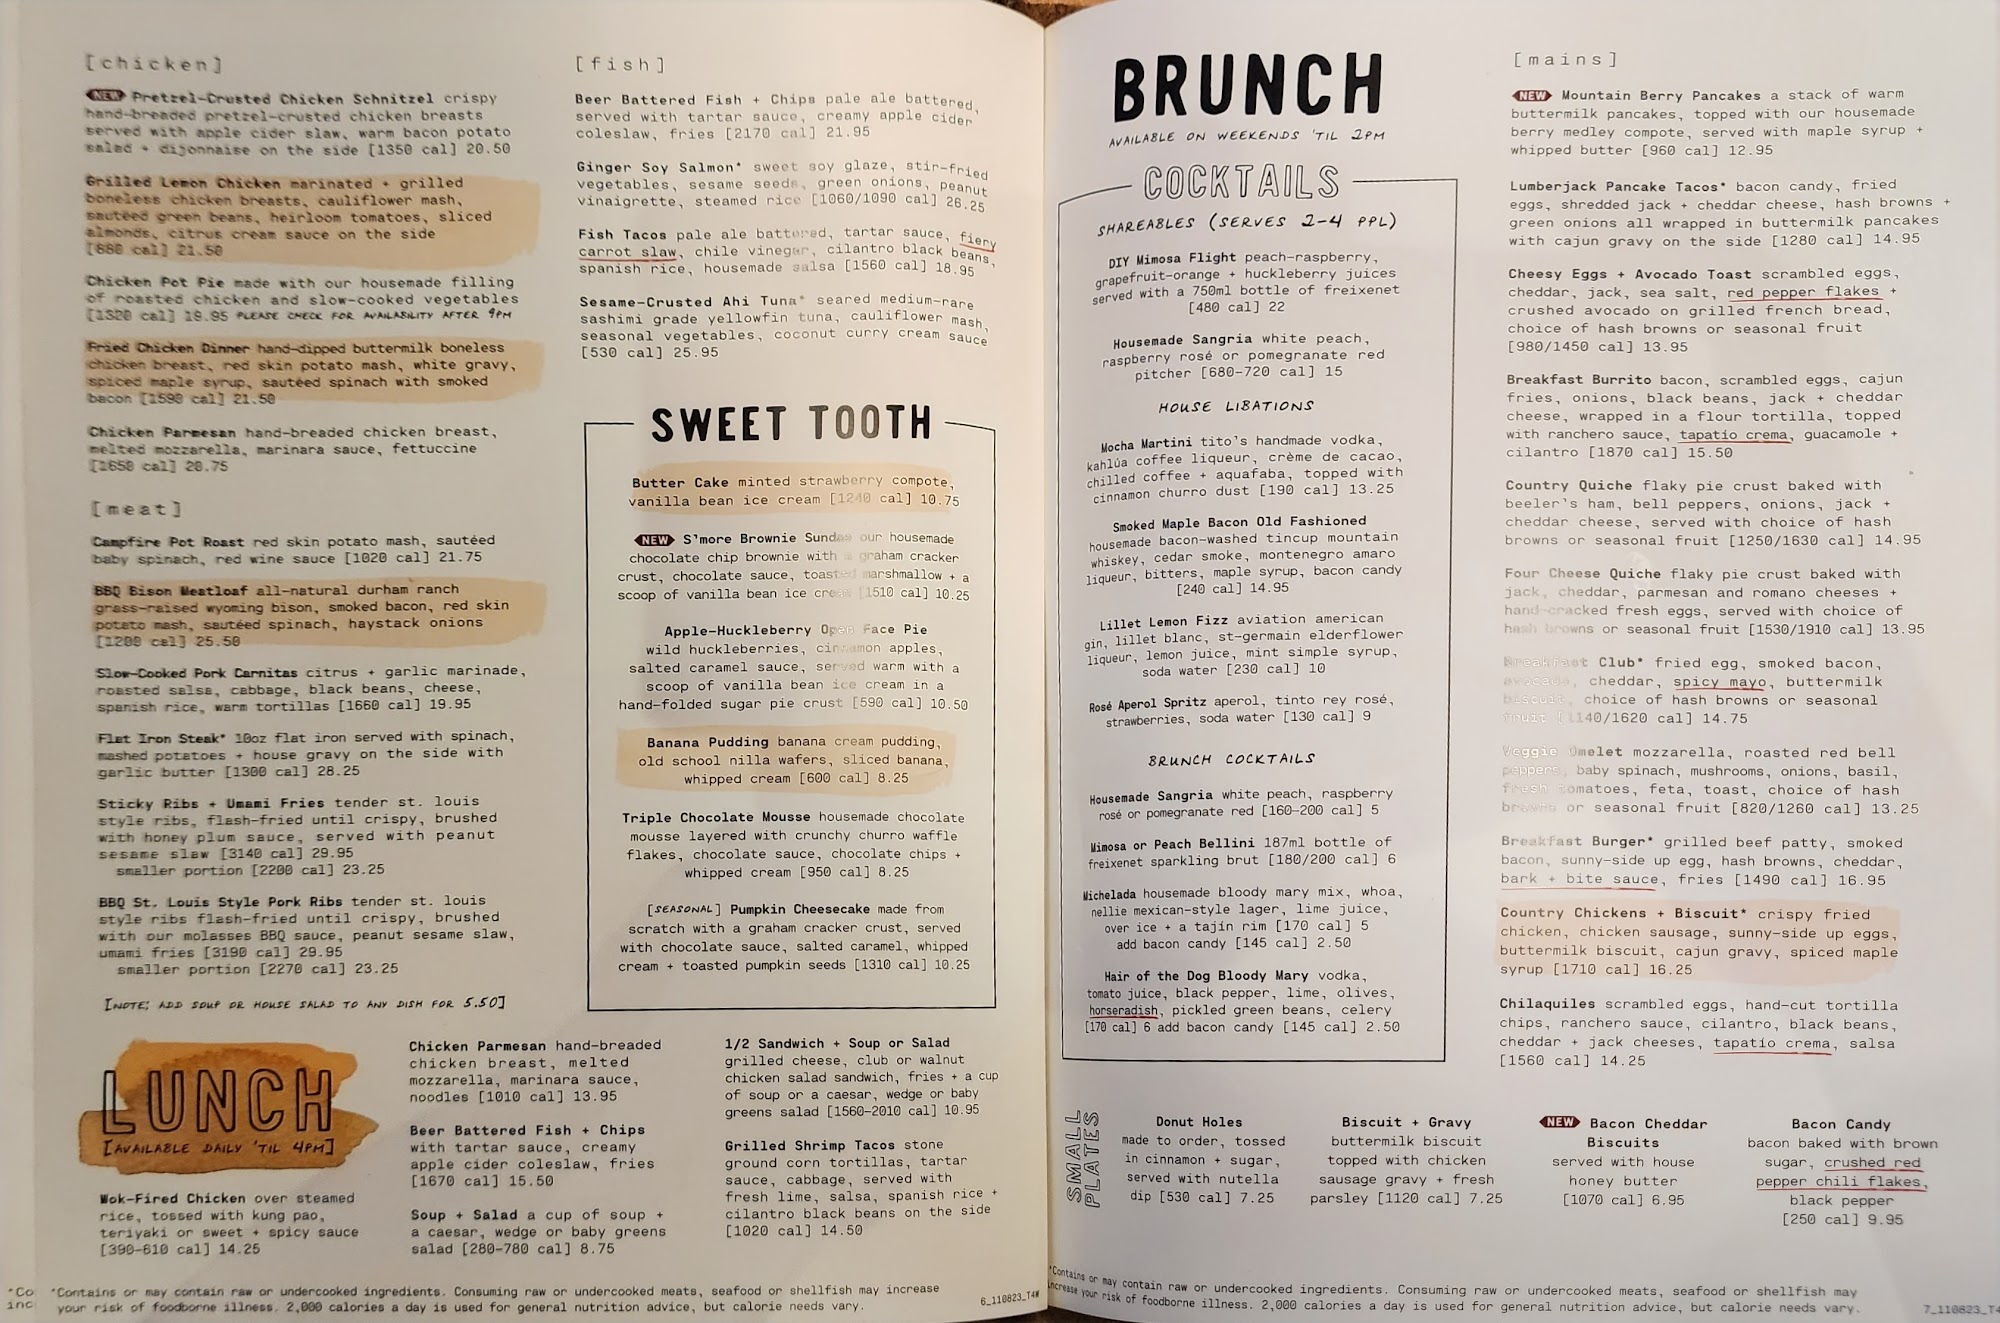 [chicken]
NEW Pretzel-Crusted Chicken Schnitzel crispy
hand-breaded pretzel-crusted chicken breasts
served with apple cider slaw, warm bacon potato
salad + dijonnaise on the side [1350 cal] 20.50
Grilled Lemon Chicken marinated + grilled
boneless chicken breasts, cauliflower mash,
sautéed green beans, heirloom tomatoes, sliced
almonds, citrus cream sauce on the side
[680 cal] 21.50
Chicken Pot Pie made with our housemade filling
of roasted chicken and slow-cooked vegetables
[1320 cal] 19.95 PLEASE CHECK FOR AVAILABILITY AFTER 9PM
Fried Chicken Dinner hand-dipped buttermilk boneless
chicken breast, red skin potato mash, white gravy,
spiced maple syrup, sautéed spinach with smoked
bacon [1590 cal] 21.50
Chicken Parmesan hand-breaded chicken breast,
melted mozzarella, marinara sauce, fettuccine
[1650 cal] 20.75
[meat]
Campfire Pot Roast red skin potato mash, sautéed
baby spinach, red wine sauce [1020 cal] 21.75
BBQ Bison Meatloaf all-natural durham ranch
grass-raised wyoming bison, smoked bacon, red skin
potato mash, sautéed spinach, haystack onions
[1200 cal] 25.50
Slow-Cooked Pork Carnitas citrus + garlic marinade,
roasted salsa, cabbage, black beans, cheese,
spanish rice, warm tortillas [1660 cal] 19.95
Flat Iron Steak* 10oz flat iron served with spinach,
mashed potatoes + house gravy on the side with
garlic butter [1300 cal] 28.25
Sticky Ribs + Umami Fries tender st. louis
style ribs, flash-fried until crispy, brushed
with honey plum sauce, served with peanut
sesame slaw [3140 cal] 29.95
smaller portion [2200 cal] 23.25
BBQ St. Louis Style Pork Ribs tender st. louis
style ribs flash-fried until crispy, brushed
with our molasses BBQ sauce, peanut sesame slaw,
umami fries [3190 cal] 29.95
smaller portion [2270 cal] 23.25
[NOTE: ADD SOUP OR HOUSE SALAD TO ANY DISH FOR 5.50]
[fish]
Beer Battered Fish + Chips pale ale battered,
served with tartar sauce, creamy apple cider
coleslaw, fries [2170 cal] 21.95
Ginger Soy Salmon* sweet soy glaze, stir-fried
vegetables, sesame seeds, green onions, peanut
vinaigrette, steamed rice [1060/1090 cal] 26.25
Fish Tacos pale ale battered, tartar sauce, fiery
carrot slaw, chile vinegar, cilantro black beans,
spanish rice, housemade salsa [1560 cal] 18.95
Sesame-Crusted Ahi Tuna* seared medium-rare
sashimi grade yellowfin tuna, cauliflower mash,
seasonal vegetables, coconut curry cream sauce
[530 cal] 25.95
SWEET TOOTH
Butter Cake minted strawberry compote,
vanilla bean ice cream [1240 cal] 10.75
NEW S'more Brownie Sundae our housemade
chocolate chip brownie with a graham cracker
crust, chocolate sauce, toasted marshmallow + a
scoop of vanilla bean ice cream [1510 cal] 10.25
Apple-Huckleberry Open Face Pie
wild huckleberries, cinnamon apples,
salted caramel sauce, served warm with a
scoop of vanilla bean ice cream in a
hand-folded sugar pie crust [590 cal] 10.50
Banana Pudding banana cream pudding,
old school nilla wafers, sliced banana,
whipped cream [600 cal] 8.25
Triple Chocolate Mousse housemade chocolate
mousse layered with crunchy churro waffle
flakes, chocolate sauce, chocolate chips +
whipped cream [950 cal] 8.25
[SEASONAL] Pumpkin Cheesecake made from
scratch with a graham cracker crust, served
with chocolate sauce, salted caramel, whipped
cream + toasted pumpkin seeds [1310 cal] 10.25
LUNCH
[AVAILABLE DAILY 'TIL 4PM]
Wok-Fired Chicken over steamed
rice, tossed with kung pao,
teriyaki or sweet + spicy sauce
[390-610 cal] 14.25
Chicken Parmesan hand-breaded
chicken breast, melted
mozzarella, marinara sauce,
noodles [1010 cal] 13.95
Beer Battered Fish + Chips
with tartar sauce, creamy
apple cider coleslaw, fries
[1670 cal] 15.50
Soup + Salad a cup of soup +
a caesar, wedge or baby greens
salad [280-780 cal] 8.75
1/2 Sandwich + Soup or Salad
grilled cheese, club or walnut
chicken salad sandwich, fries + a cup
of soup or a caesar, wedge or baby
greens salad [1560-2010 cal] 10.95
Grilled Shrimp Tacos stone
ground corn tortillas, tartar
sauce, cabbage, served with
fresh lime, salsa, spanish rice +
cilantro black beans on the side
[1020 cal] 14.50
*Co
inc
*Contains or may contain raw or undercooked ingredients. Consuming raw or undercooked meats, seafood or shellfish may increase
your risk of foodborne illness. 2,000 calories a day is used for general nutrition advice, but calorie needs vary.
6_110823_T4W
BRUNCH
AVAILABLE ON WEEKENDS 'TIL 2PM
COCKTAILS
SHAREABLES (SERVES 2-4 PPL)
DIY Mimosa Flight peach-raspberry,
grapefruit-orange + huckleberry juices
served with a 750ml bottle of freixenet
[480 cal] 22
Housemade Sangria white peach,
raspberry rosé or pomegranate red
pitcher [680-720 cal] 15
HOUSE LIBATIONS
Mocha Martini tito's handmade vodka,
kahlúa coffee liqueur, crème de cacao,
chilled coffee + aquafaba, topped with
cinnamon churro dust [190 cal] 13.25
Smoked Maple Bacon Old Fashioned
housemade bacon-washed tincup mountain
whiskey, cedar smoke, montenegro amaro
liqueur, bitters, maple syrup, bacon candy
[240 cal] 14.95
Lillet Lemon Fizz aviation american
gin, lillet blanc, st-germain elderflower
liqueur, lemon juice, mint simple syrup,
soda water [230 cal] 10
Rosé Aperol Spritz aperol, tinto rey rosé,
strawberries, soda water [130 cal] 9
BRUNCH COCKTAILS
Housemade Sangria white peach, raspberry
rosé or pomegranate red [160-200 cal] 5
Mimosa or Peach Bellini 187ml bottle of
freixenet sparkling brut [180/200 cal] 6
Michelada housemade bloody mary mix, whoa,
nellie mexican-style lager, lime juice,
over ice + a tajín rim [170 cal] 5
add bacon candy [145 cal] 2.50
Hair of the Dog Bloody Mary vodka,
tomato juice, black pepper, lime, olives,
horseradish, pickled green beans, celery
[170 cal] 6 add bacon candy [145 cal] 2.50
[mains]
NEW Mountain Berry Pancakes a stack of warm
buttermilk pancakes, topped with our housemade
berry medley compote, served with maple syrup +
whipped butter [960 cal] 12.95
Lumberjack Pancake Tacos* bacon candy, fried
eggs, shredded jack + cheddar cheese, hash browns +
green onions all wrapped in buttermilk pancakes
with cajun gravy on the side [1280 cal] 14.95
Cheesy Eggs + Avocado Toast scrambled eggs,
cheddar, jack, sea salt, red pepper flakes +
crushed avocado on grilled french bread,
choice of hash browns or seasonal fruit
[980/1450 cal] 13.95
Breakfast Burrito bacon, scrambled eggs, cajun
fries, onions, black beans, jack + cheddar
cheese, wrapped in a flour tortilla, topped
with ranchero sauce, tapatio crema, guacamole +
cilantro [1870 cal] 15.50
Country Quiche flaky pie crust baked with
beeler's ham, bell peppers, onions, jack +
cheddar cheese, served with choice of hash
browns or seasonal fruit [1250/1630 cal] 14.95
Four Cheese Quiche flaky pie crust baked with
jack, cheddar, parmesan and romano cheeses +
hand-cracked fresh eggs, served with choice of
hash browns or seasonal fruit [1530/1910 cal] 13.95
Breakfast Club* fried egg, smoked bacon,
avocado, cheddar, spicy mayo, buttermilk
biscuit, choice of hash browns or seasonal
fruit [1140/1620 cal] 14.75
Veggie Omelet mozzarella, roasted red bell
peppers, baby spinach, mushrooms, onions, basil,
fresh tomatoes, feta, toast, choice of hash
browns or seasonal fruit [820/1260 cal] 13.25
Breakfast Burger* grilled beef patty, smoked
bacon, sunny-side up egg, hash browns, cheddar,
bark + bite sauce, fries [1490 cal] 16.95
Country Chickens + Biscuit* crispy fried
chicken, chicken sausage, sunny-side up eggs,
buttermilk biscuit, cajun gravy, spiced maple
syrup [1710 cal] 16.25
Chilaquiles scrambled eggs, hand-cut tortilla
chips, ranchero sauce, cilantro, black beans,
cheddar + jack cheeses, tapatio crema, salsa
[1560 cal] 14.25
SMALL
PLATES
Donut Holes
made to order, tossed
in cinnamon + sugar,
served with nutella
dip [530 cal] 7.25
Biscuit + Gravy
buttermilk biscuit
topped with chicken
sausage gravy + fresh
parsley [1120 cal] 7.25
NEW Bacon Cheddar
Biscuits
served with house
honey butter
[1070 cal] 6.95
Bacon Candy
bacon baked with brown
sugar, crushed red
pepper chili flakes,
black pepper
[250 cal] 9.95
*Contains or may contain raw or undercooked ingredients. Consuming raw or undercooked meats, seafood or shellfish may
increase your risk of foodborne illness. 2,000 calories a day is used for general nutrition advice, but calorie needs vary.
7_110823_T4